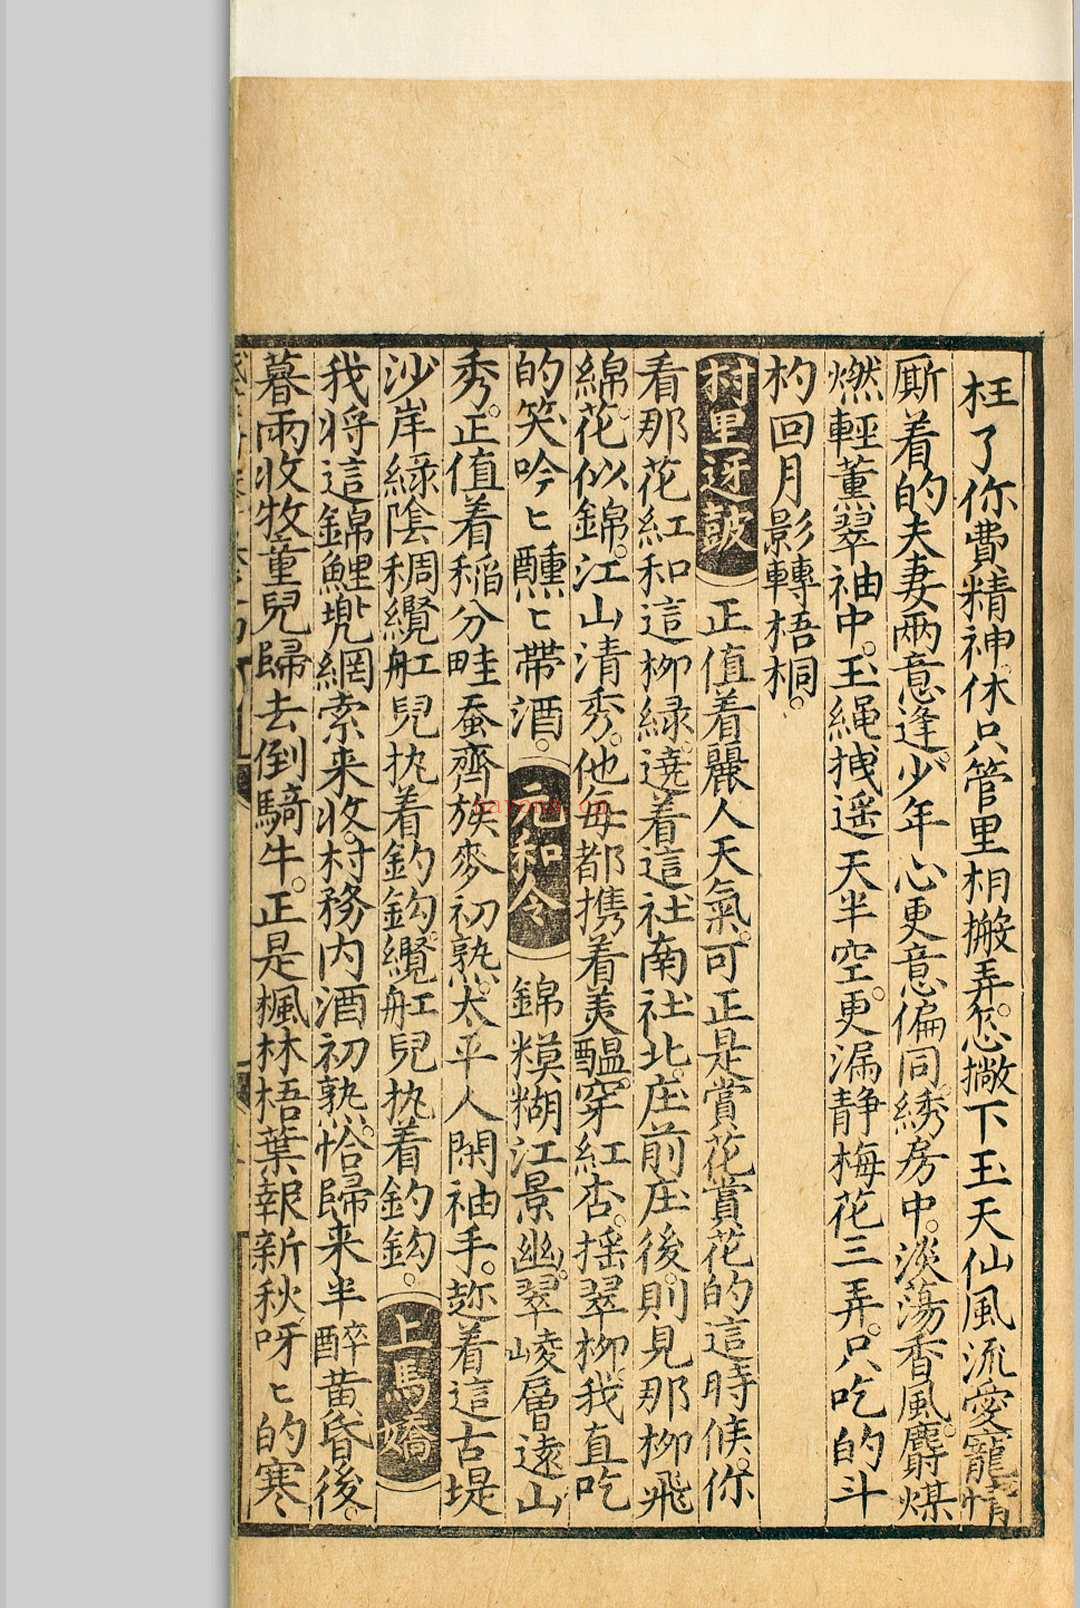 枉了你費精神。休只管里相搬弄。怎撇下玉天仙風流愛寵情
厮着的夫妻兩意逢。少年心更意偏同。綉房中。淡蕩香風。麝煤
燃輕薰翠袖中。玉繩拽遥天半空。更漏静梅花三弄。只吃的斗
杓回月影轉梧桐。
村里迓鼓 正值着麗人天氣。可正是賞花賞花的這時候。你
看那花紅和這柳緑。遶着這社南社北。庄前庄後。則見那柳飛
綿。花似錦。江山清秀。他每都携着美醞。穿紅杏。揺翠柳。我直吃
的笑吟〻醺〻帶酒。 元和令 錦糢糊江景幽。翠崚層遠山
秀。正值着稲分畦蚕齊族麥初熟。太平人閑袖手。趂着這古堤
沙岸緑陰稠纜舡兒执着釣鈎。纜舡兒执着釣鈎。 上馬嬌
我将這錦鯉兠網索来收。村務内酒初熟。恰歸来半醉黄昏後。
暮雨收牧童兒歸去倒騎牛。正是楓林梧葉報新秋呀〻的寒